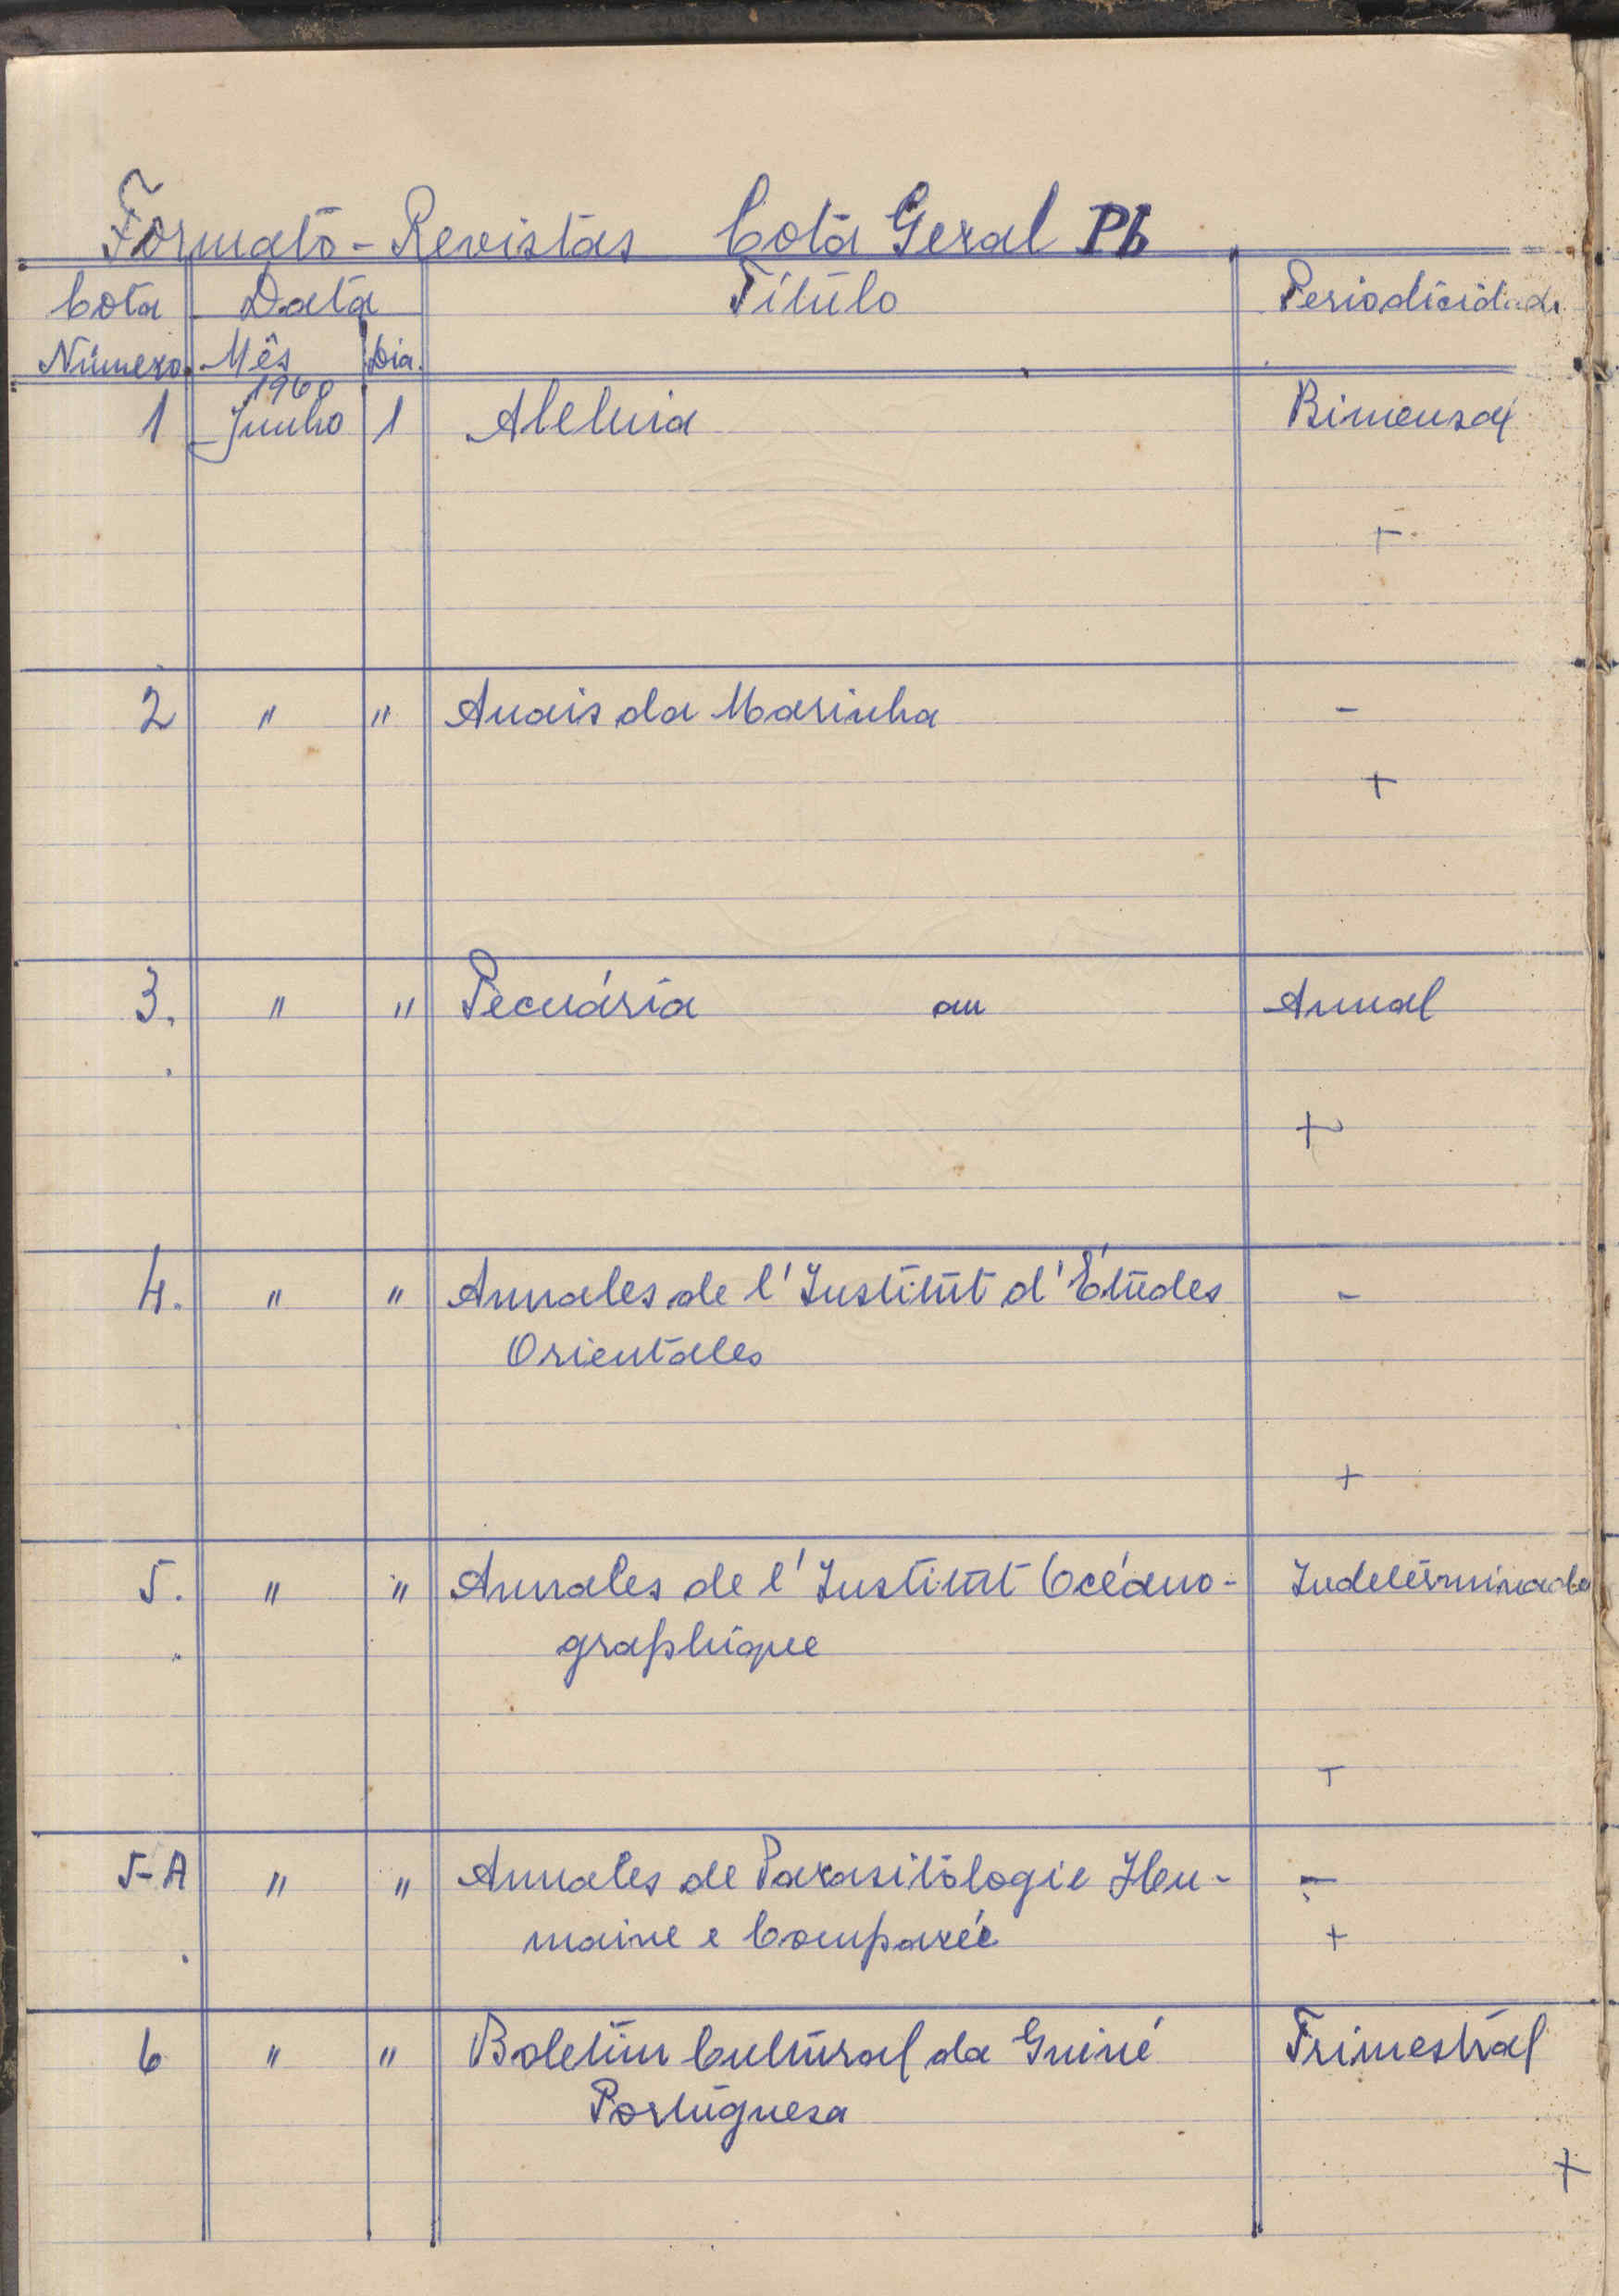 Formato - Revistas Cota Geral Pb
Cota Data Título Periodicidade
Número Mês Dia
1960
1 Junho 1 Aleluia Bimensal
+
2 " " Anais da Marinha -
+
3. " " Pecuária an Annal
+
4. " " Annales de l'Institut d'Études -
Orientales
+
5. " " Annales de l'Institut Océano- Indeterminado
graphique
+
5-A " " Annales de Parasitologie Hu- -
maine e Comparée +
6 " " Boletim Cultural da Guiné Trimestral
Portuguesa
+